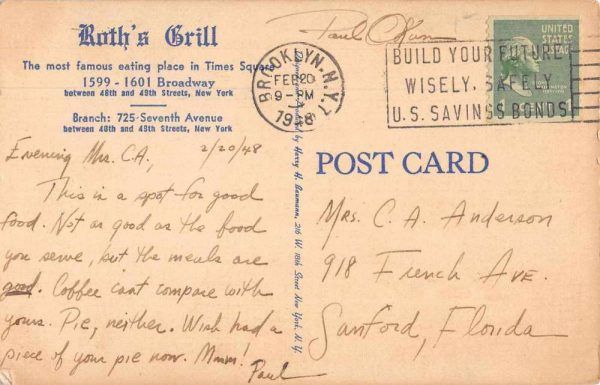 Roth's Grill
The most famous eating place in Times Square
1599 - 1601 Broadway
between 48th and 49th Streets, New York
Branch: 725 Seventh Avenue
between 48th and 49th Streets, New York
Evening Mrs. C.A, 2/20/48
This is a spot for good
food. Not as good as the food
you serve, but the meals are
good. Coffee cant compare with
yours. Pie, neither. Wish had a
piece of your pie now. Mmm!
Paul
by Harry H. Baumann, 216 W. 18th Street New York, N.Y.
Paul
BROOKLYN, N.Y.
FEB 20
9 - PM
1948
BUILD YOUR FUTURE
WISELY, SAFELY
U.S. SAVINGS BONDS
UNITED
STATES
POSTAGE
POST CARD
Mrs. C. A. Anderson
918 French Ave.
Sanford, Florida